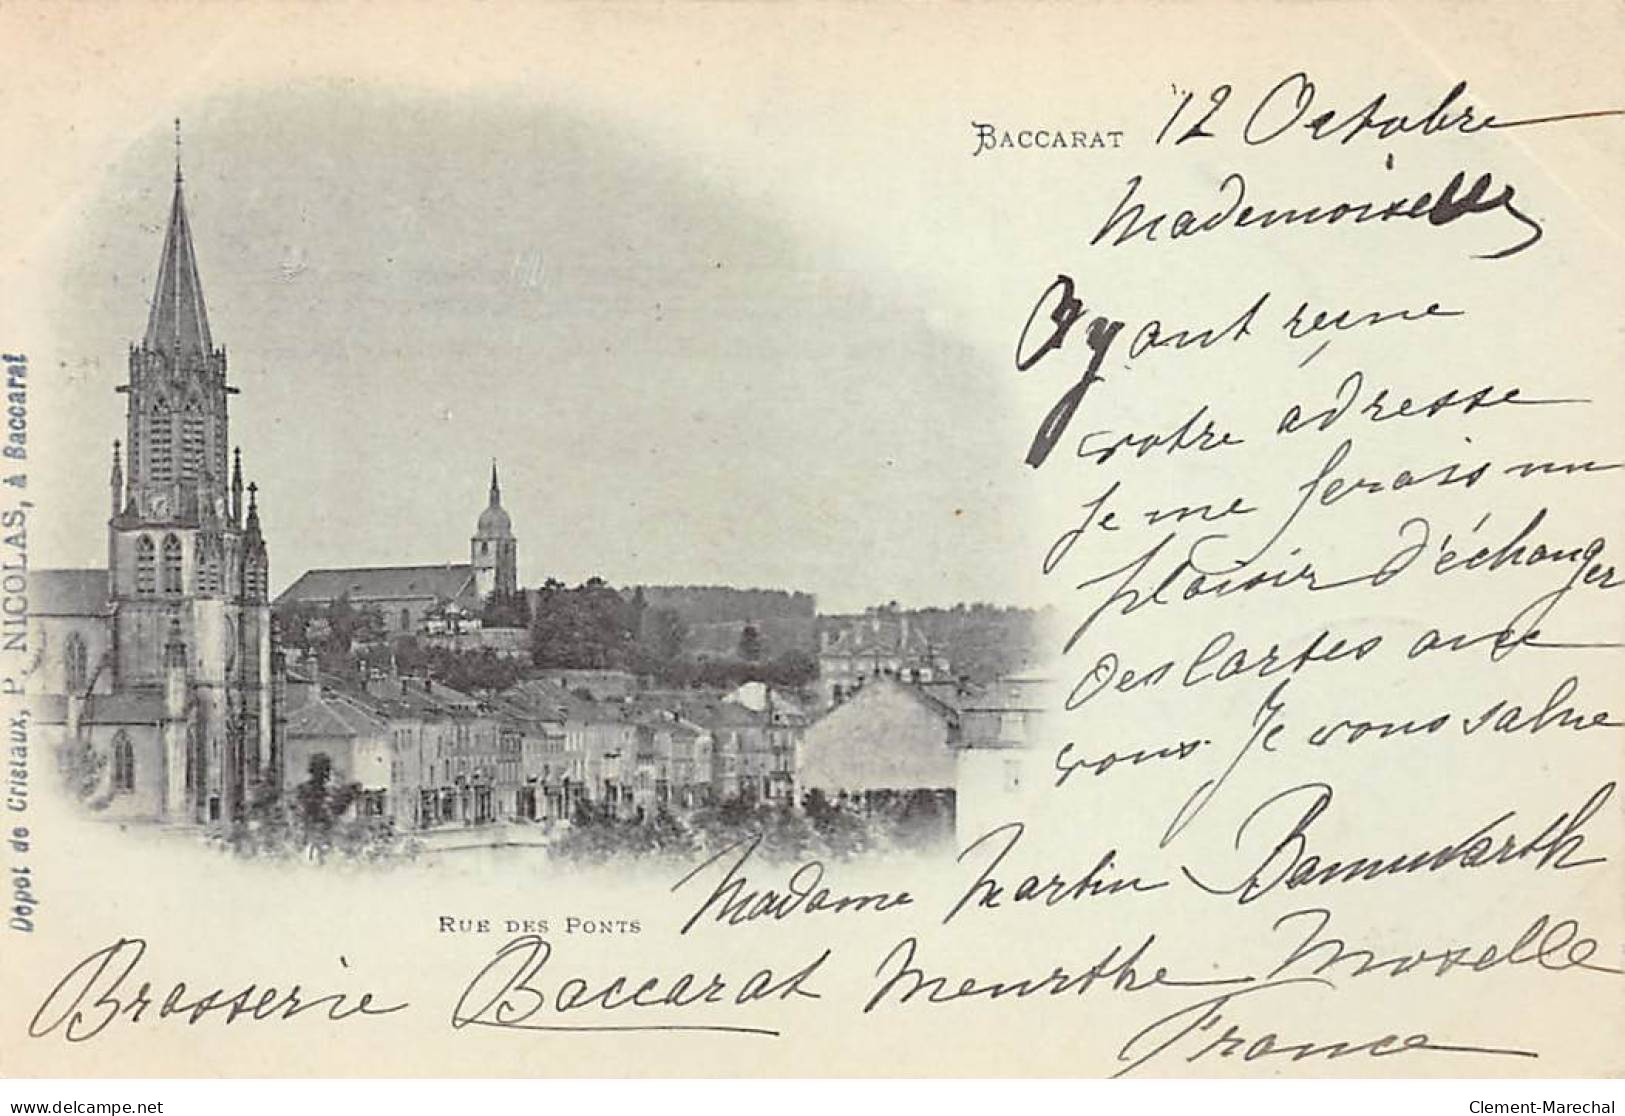 BACCARAT
12 Octobre
Mademoiselle
Ayant reçue
votre adresse
Je me ferais un
plaisir d'échanger
des Cartes avec
vous. Je vous salue
Madame Martin Bannwarth
Brasserie Baccarat Meurthe Moselle
France
RUE DES PONTS
Dépot de Cristaux, P. NICOLAS, à Baccarat
www.delcampe.net
Clement-Marechal